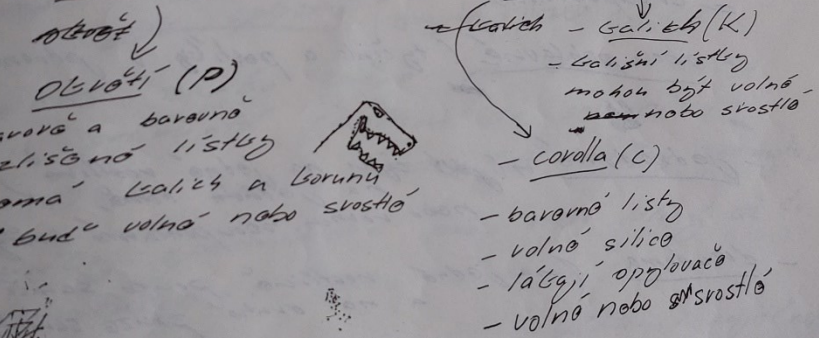 Okvětí (P)
a barevně
lístky
kalich a korunu
buď volné nebo srostlé
- kalich (K)
- kališní lístky
mohou být volné
nebo srostlé
- corolla (C)
- barevné listy
- volné silice
- lákají opylovače
- volné nebo srostlé